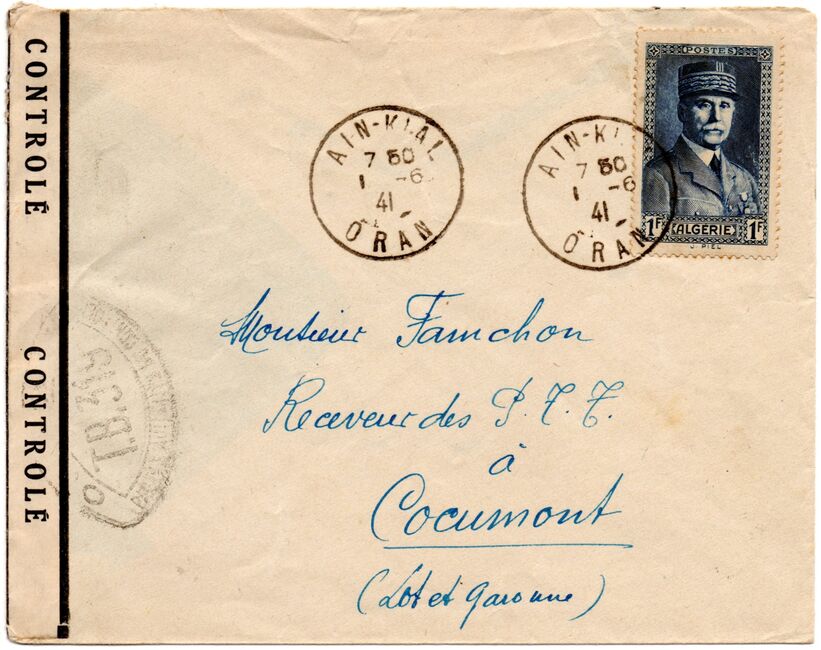 CONTROLÉ
CONTROLÉ
AIN-KIAL
7 50
1 -6
41
ORAN
AIN-KIAL
7 50
1 -6
41
ORAN
POSTES
1F ALGÉRIE 1F
J. PIEL
Monsieur Famchon
Receveur des P.T.T.
à
Cocumont
(Lot et Garonne)